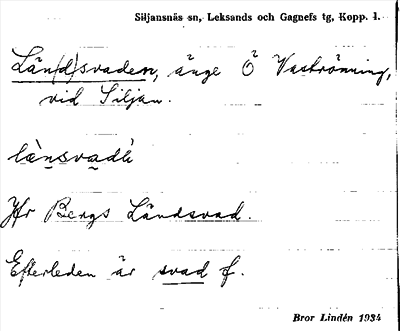 Siljansnäs sn, Leksands och Gagnefs tg, Kopp. l.
Län(d)svaden, änge Ö Väströnning,
vid Siljan.
Jfr Bergs Ländsvad.
Efterleden är svad f.
Bror Lindén 1934